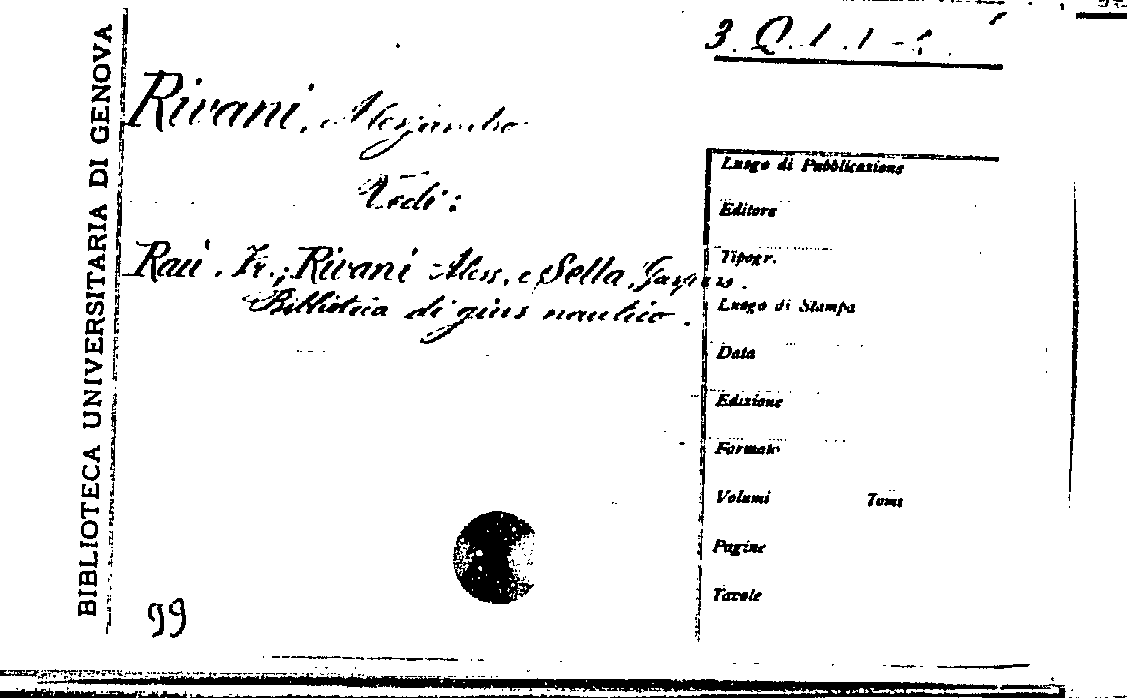 BIBLIOTECA UNIVERSITARIA DI GENOVA
3. Q. 1. 1-
Rivani, Alessandro
Vedi:
Rau. Fr.; Rivani Aless. e Sella, Gaspare.
Biblioteca di gius nautico.
Luogo di Pubblicazione
Editore
Tipogr.
Luogo di Stampa
Data
Edizione
Formato
Volumi Tomi
Pagine
Tavole
99